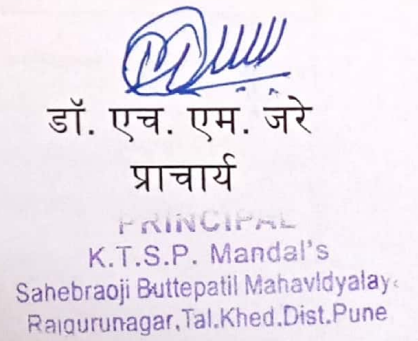 डॉ. एच. एम. जरे
प्राचार्य
PRINCIPAL
K.T.S.P. Mandal's
Sahebraoji Buttepatil Mahavidyalay
Rajgurunagar,Tal.Khed.Dist.Pune